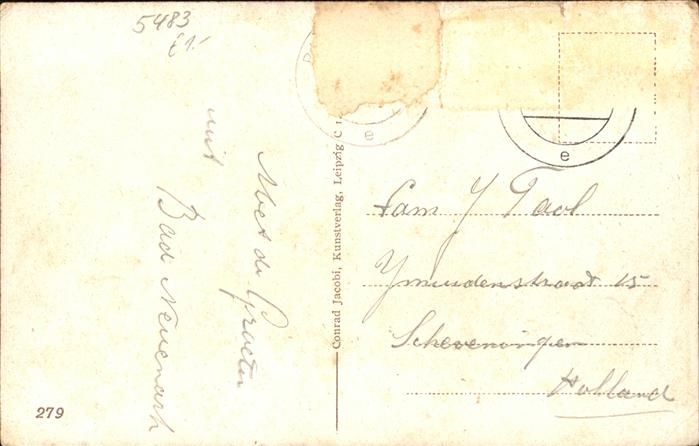 5483
Met de Groeten
uit
Bad Neuenarh
279
Conrad Jacobi, Kunstverlag, Leipzig C 1
e
e
Fam J Taol
Ymuidenstraat 15
Scheveningen
Holland